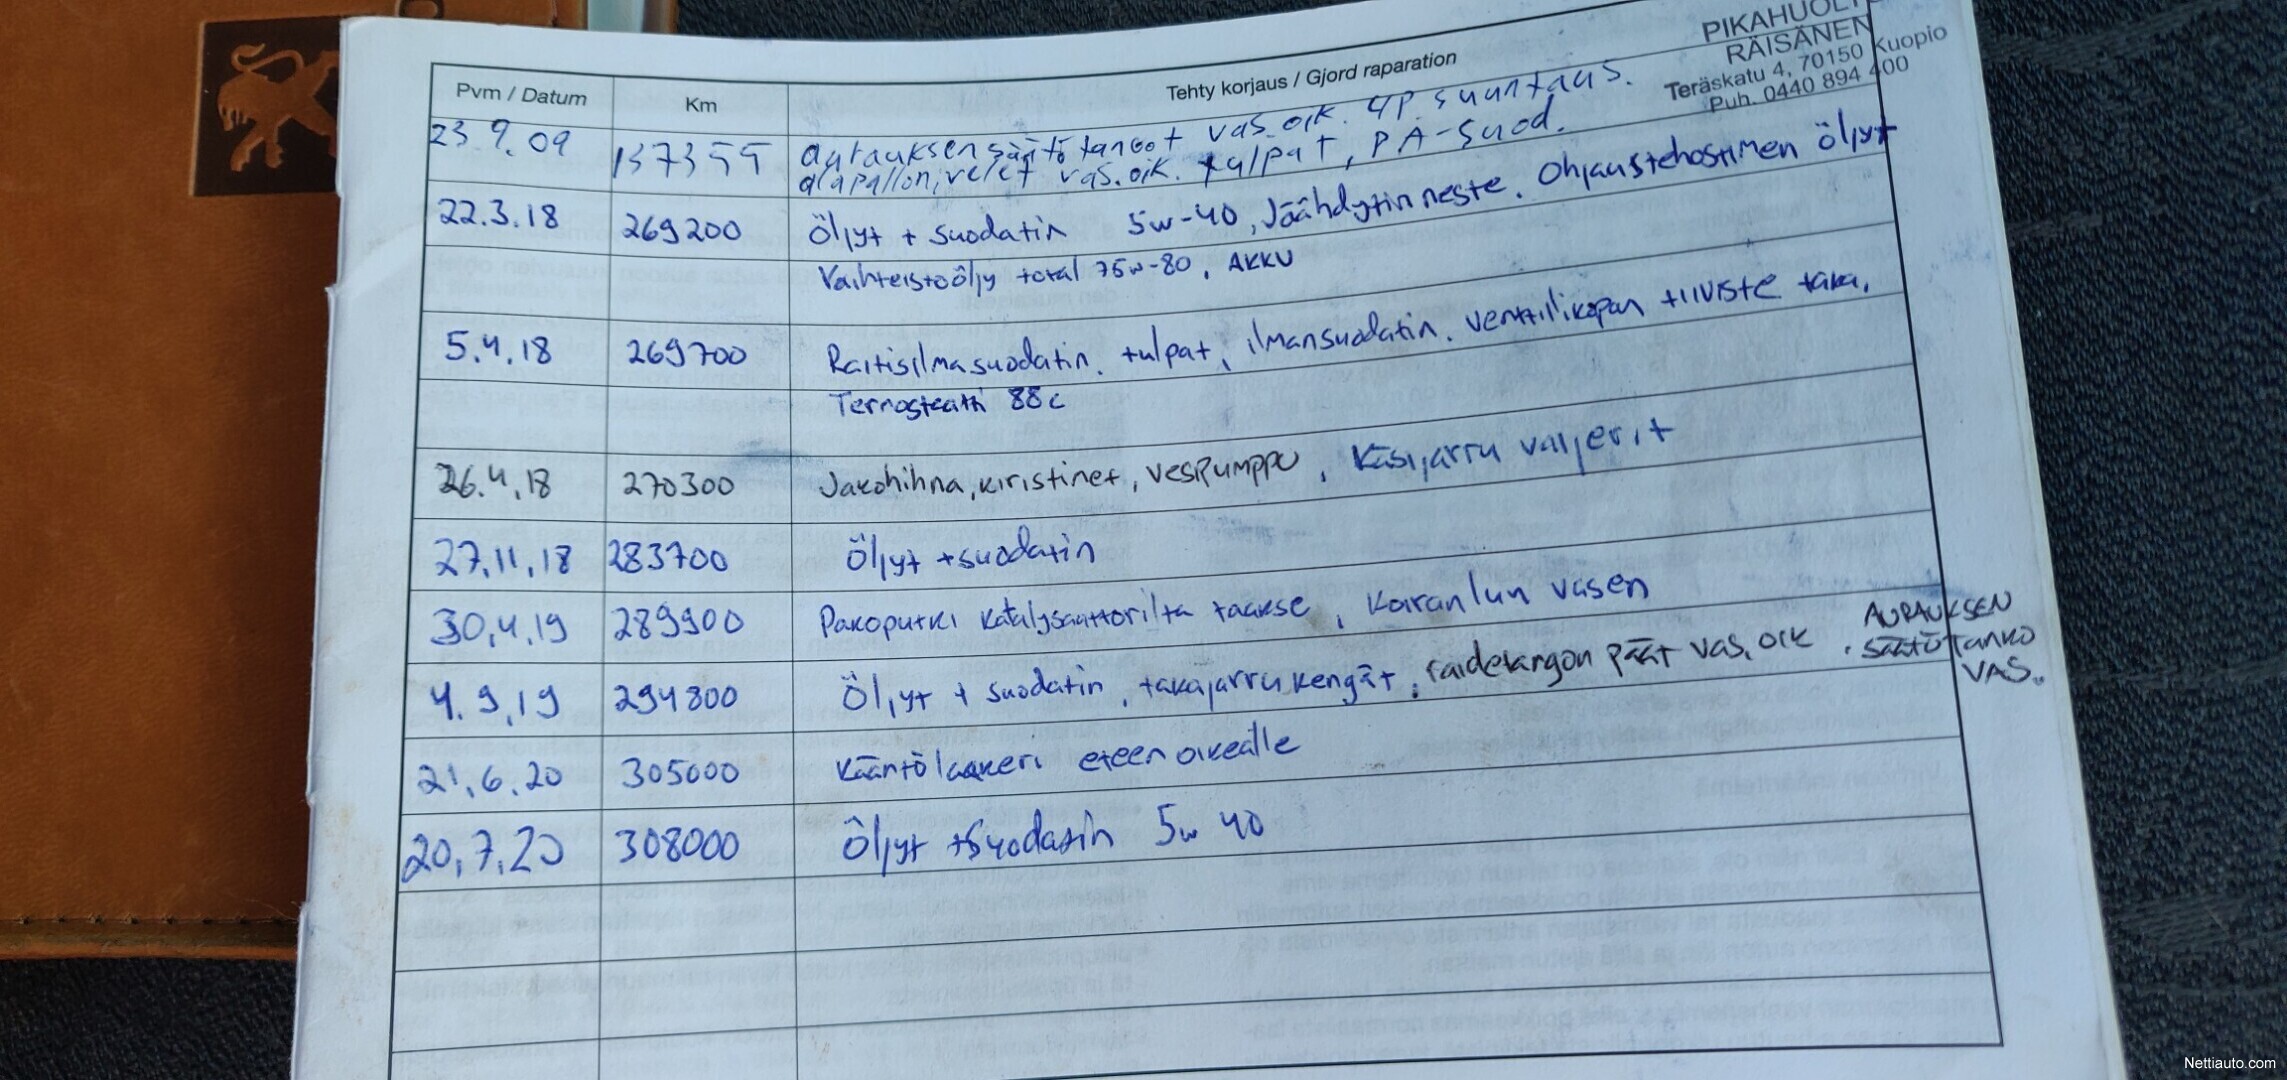 PIKAHUOLT
RÄISÄNEN
Teräskatu 4, 70150 Kuopio
Puh. 0440 894 400
Pvm / Datum Km Tehty korjaus / Gjord raparation
23.9.09 137355 aurauksensäätötangot vas.oik. 4p.suuntaus.
alapallonivelet vas.oik. tulpat, PA-suod.
22.3.18 269200 Öljyt + suodatin 5w-40, Jäähdytinneste. Ohjaustehostimen öljyt
Vaihteistoöljy total 75w-80, AKKU
5.4.18 269700 Raitisilmasuodatin, tulpat, ilmansuodatin. venttiilikopan tiiviste taka,
Termostaatti 88c
26.4,18 270300 Jakohihna, kiristinet, vesipumppu, Käsijarru vaijerit
27,11,18 283700 Öljyt +suodatin
30,4,19 289900 Pakoputki katalysaattorilta taakse, koiranluu vasen
4.9,19 294800 Öljyt + suodatin, takajarrukengät, raidetangon päät vas, oik . AURAUKSEN
SÄÄTÖTANKO
VAS.
21,6.20 305000 Kääntölaakeri eteen oikealle
20,7,20 308000 Öljyt +Suodatin 5w 40
Nettiauto.com